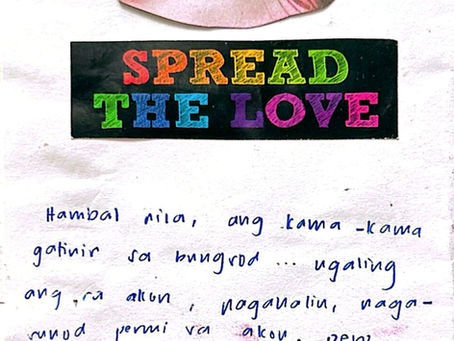 SPREAD
THE LOVE
Hambal nila, ang kama-kama
gatinir sa bungsod... ugaling
ang sa akon, nagahalin, naga-
sunod permi sa akon.